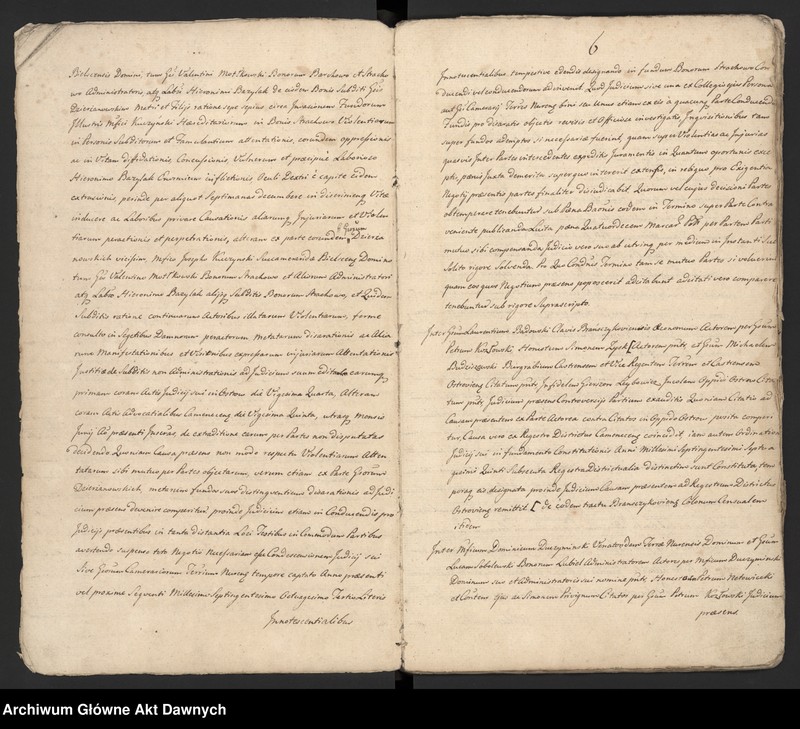 Bielscensis Domini, tum Gsi Valentini Motłkowski Bonorum Barchowo et Stracho
wo Administratoris atq Labsi Hieronimi Bazylak de iisdem Bonis Subditi Gsis
Dzierzanowskim Matri et Filijs ratione
Illustris Mfici Kuczynski Hæreditariorum in Bonis Strachowo Violentiarum
in Personis Subditorum et Famulantium attentationis, eorundem oppressionis
ac in Vitam diffidationis Concussionis Vulnerum et præcipue Laborioso
Hieronimo Bazylak Enormium inflictionis Pauli Dextri é capite eidem
extorsionis, perinde per aliquot Septimanas decumbere in discrimeng Vitæ
inducere ac Laboribus privare Causationis aliarumq Injuriarum et Violen
tiarum peractionis et perpetrationis, alteram ex parte eorundem Gsorum Dzierza
nowskich vicissim, Mfico Josepho Kuczynski Succamerario Bielscensi Domino
tum Gsi Valentino Motłkowski Bonorum Strachowo et Aliorum Administratori
atq Labso Hieronimo Bazylak alijsq Subditis Bonorum Strachowo, et Quidem
Subditis ratione continuarum Actoribus illatarum Violentiarum, forme
consulto in Segetibus Damnorum peractorum metatarum dissecationis ac Alia
rum Manifestationibus et Visionibus expressarum injuriarum Attentationis
Justitiæ de Subditis non Administrationis ad Judicium suum editab earumq
primam coram Actis Judicij sui in Ostrow die Vigesima Quarta, Alteram
coram Actis Advocatialibus Camenecens die Vigesima Quinta, utraq mensis
Junij Ai præsenti Inscrōs, de extraditione earum per Partes non disputatas
decidendo Quoniam Causa præsens non modo respectu Violentiarum Atten
tatarum sibi mutuo per Partes objectarum, verum etiam ex Parte Gsorum
Dzierzanowskich, metarum fundos suos distinguentium dissecationis ad Judi
cium præsens devenire comperitur proinde Judicium etiam in Conducendis pro
Judicijs præsentibus in tanta distantia Loci Testibus in Commodum Partibus
avertendo suspenso toto Negotio Necessariam esse Condescensionem Judicij sui
Sive Gsorum Camerariorum Terrium Nurens tempore captato Anno præsenti
vel proxime Sequenti Millesimo Septingentesimo Octuagesimo Tertio Literis
Innotescentialibus
6
Innotescentialibus tempestive edendis designando in fundum Bonorum Strachowo Con
ducendi vel conducendorum adinvenit Quod Judicium sive una ex Collegis ejus Persona
aut Gsi Camerarij Terræ Nurens bini seu Unus etiam ex iis á quacunq Parte Conducendus
Fundis pro dissecatis objectis revisis et Officiose investigatis, Inquisitionibus tam
super fundos ademptos si necessariæ fuerint, quam super Violentias ac Injurias
quasvis Inter Partes intercedentes expeditis Juramentis in Quantum oportunis exce
ptis, pænis Juxta demerita supergus in trrexit extensis, in reliquo pro Exigentia
Negotij præsentis partes finaliter dijudicabit Quorum vel cujus decisioni Partes
obtemperare tenebuntur sub Pæna Bāōnis eodem in Termino super Parte Contra
veniente publicanda Luita pæna Quatuordecem Marcar Poll per Partem Parti
mutuo sibi compensanda Judicio vero suo ad utrinq per medium in Instanti Sub
Solito rigore Solvenda. Pro Quo Conduus Termino tam se mutuo Partes si voluerint
quam eos quos Negotium præsens poposcerit adcitabunt adcitati vero comparere
tenebuntur sub rigore Suprascripto.
Inter Gsum Laurentium Badowski Clavis Branszczykoviensis Œconomum Actorem per Gsum
Petrum Kozłowski Honestum Simonem Zych Actorem pnts, et Gsum Michaelem
Budziszewski Burgrabium Castrensem et Vice Regentem Terrēm et Castrensem
Ostroviens Citatum pnts Infidelem Giecsen Leybowicz, Incolam Oppidi Ostrow Cita
tum pnts, Judicium præsens Controversijs Partium exauditis Quoniam Citatio ad
Causam præsentem ex Parte Actorea contra Citatos in Oppido Ostrow posita comperi
tur, Causa vero ex Registro Districtus Camenecens coincidit, iam autem Ordinatione
Judicij sui in fundamento Constitutionis Anni Millesimi Septingentesimi Septua
gesimi Quinti Subsecuta Registra Districtualia distinctim sunt Constituta, tem
poraq eis designata proinde Judicium Causam præsentem ad Registrum Districtus
Ostroviens remittit. de eodem tractu Branszczykoviens Colonum Censualem
ibem
Inter Mficum Dominicum Duczyminski Venatoridem Terræ Nurensis Dominum et Gsum
Lucam Sobolewski Bonorum Lubiel Administratorem Actores per Mficum Duczyminski
Dominum suo et Administratoris sui nomine pnts, Honestum Petrum Notowicki
et Consteus ejus ac Simonem Privignum Citatos per Gsum Petrum Kozłowski Judicium
præsens
Archiwum Główne Akt Dawnych